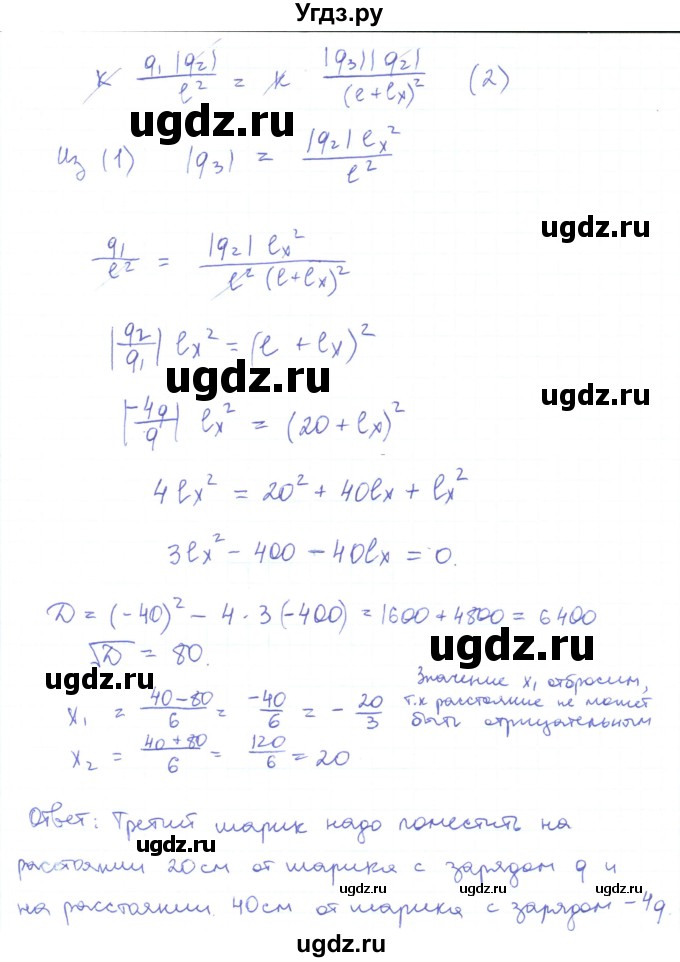 Угдз.ру
к q₁|q₂| / l² = к |q₃||q₂| / (l+lx)² (2)
ugdz.ru
Из (1) |q₃| = |q₂| lx² / l²
ugdz.ru
q₁ / l² = |q₂| lx² / l² (l+lx)²
|q₂/q₁| lx² = (l + lx)²
ugdz.ru
ugdz.ru
|-4q/q| lx² = (20 + lx)²
4lx² = 20² + 40lx + lx²
3lx² - 400 - 40lx = 0.
D = (-40)² - 4 · 3(-400) = 1600 + 4800 = 6400
ugdz.ru
√D = 80.
ugdz.ru
Значение x₁ отбросим,
т.к расстояние не может
быть отрицательным
x₁ = 40-80 / 6 = -40 / 6 = - 20 / 3
x₂ = 40+80 / 6 = 120 / 6 = 20
Ответ: Третий шарик надо поместить на
расстоянии 20см от шарика с зарядом q и
ugdz.ru ugdz.ru
на расстоянии 40см от шарика с зарядом -4q.
ugdz.ru